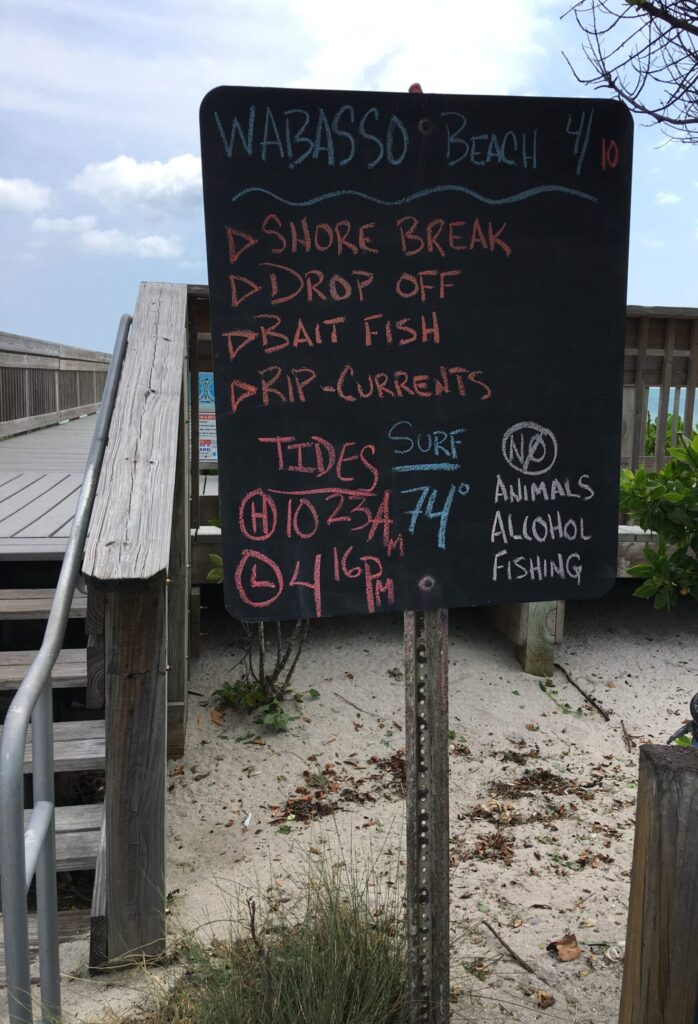 WABASSO BEACH 4/10
SHORE BREAK
DROP OFF
BAIT FISH
RIP-CURRENTS
TIDES
H 1023AM
L 416PM
SURF
74°
NO
ANIMALS
ALCOHOL
FISHING